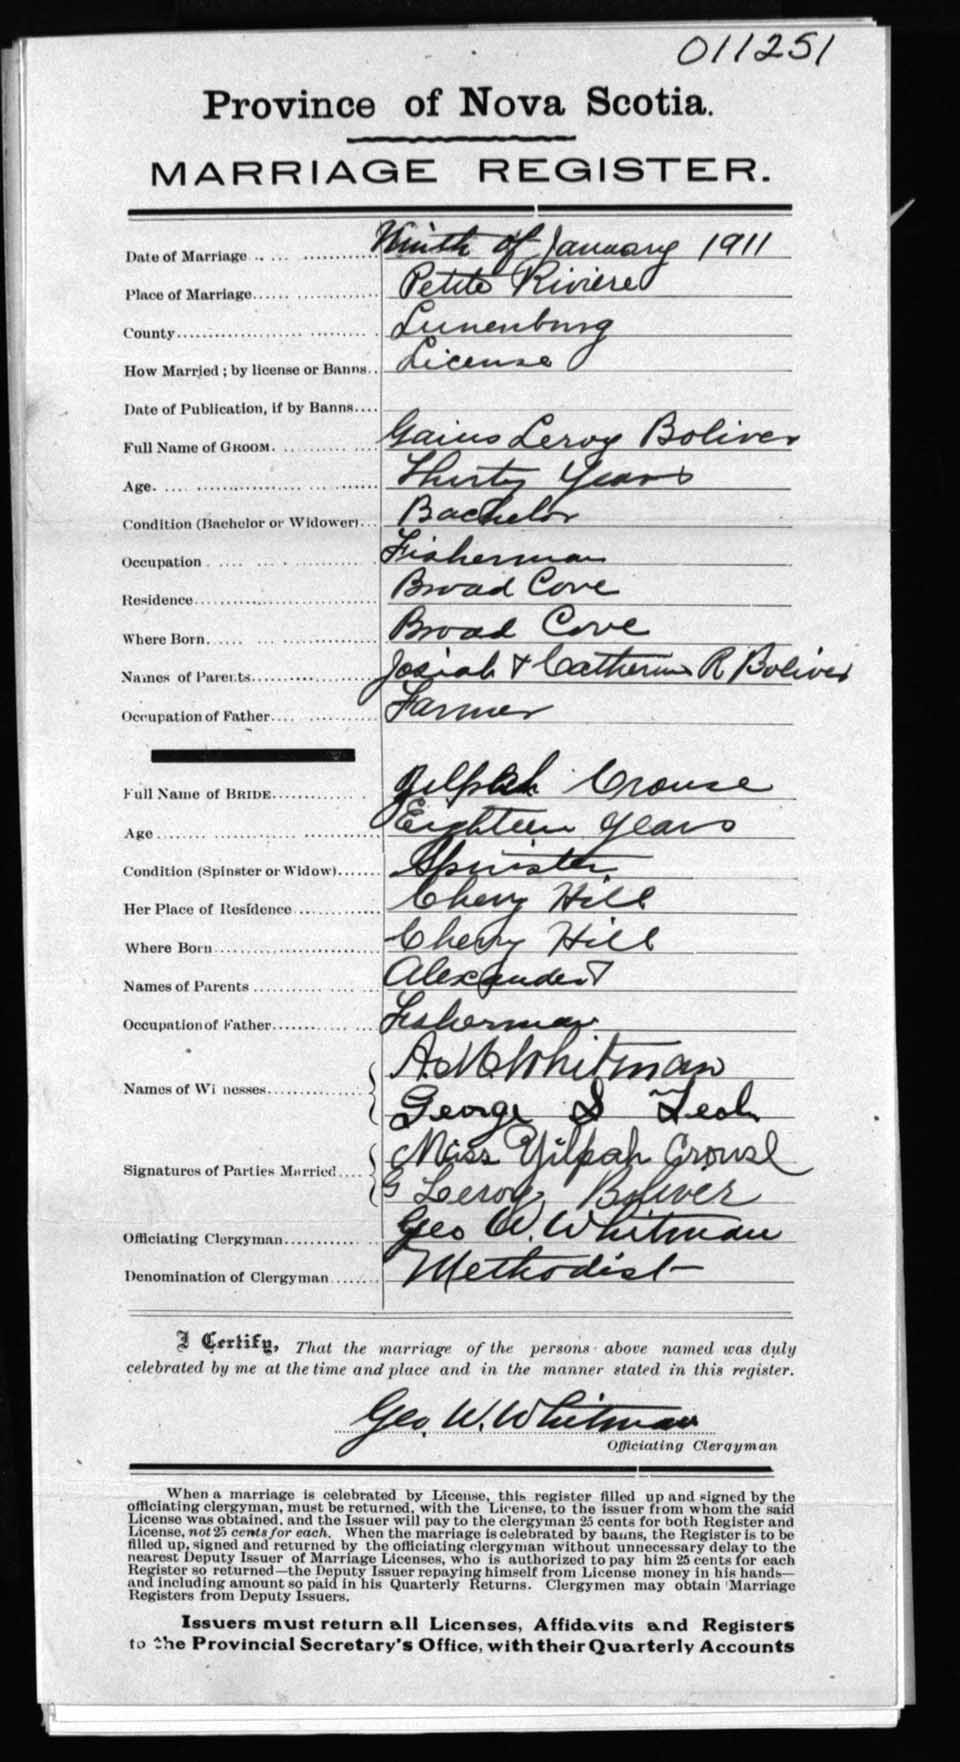 011251
Province of Nova Scotia.
MARRIAGE REGISTER.
Date of Marriage Ninth of January 1911
Place of Marriage Petite Riviere
County Lunenburg
How Married; by license or Banns License
Date of Publication, if by Banns
Full Name of GROOM Gaius Leroy Boliver
Age Thirty Years
Condition (Bachelor or Widower) Bachelor
Occupation Fisherman
Residence Broad Cove
Where Born Broad Cove
Names of Parents Josiah & Catherine R Boliver
Occupation of Father Farmer
Full Name of BRIDE Crouse
Age Eighteen years
Condition (Spinster or Widow) Spinster
Her Place of Residence Cherry Hill
Where Born Cherry Hill
Names of Parents Alexander
Occupation of Father Fisherman
Names of Wi nesses A. M. Whitman
George S
Signatures of Parties Married Miss Yilpah Crouse
G Leroy Boliver
Officiating Clergyman Geo W. Whitman
Denomination of Clergyman Methodist
I Certify, That the marriage of the persons above named was duly
celebrated by me at the time and place and in the manner stated in this register.
Geo. W. Whitman
Officiating Clergyman
When a marriage is celebrated by License, this register filled up and signed by the
officiating clergyman, must be returned, with the License, to the issuer from whom the said
License was obtained, and the Issuer will pay to the clergyman 25 cents for both Register and
License, not 25 cents for each. When the marriage is celebrated by banns, the Register is to be
filled up, signed and returned by the officiating clergyman without unnecessary delay to the
nearest Deputy Issuer of Marriage Licenses, who is authorized to pay him 25 cents for each
Register so returned—the Deputy Issuer repaying himself from License money in his hands—
and including amount so paid in his Quarterly Returns. Clergymen may obtain Marriage
Registers from Deputy Issuers.
Issuers must return all Licenses, Affidavits and Registers
to the Provincial Secretary's Office, with their Quarterly Accounts